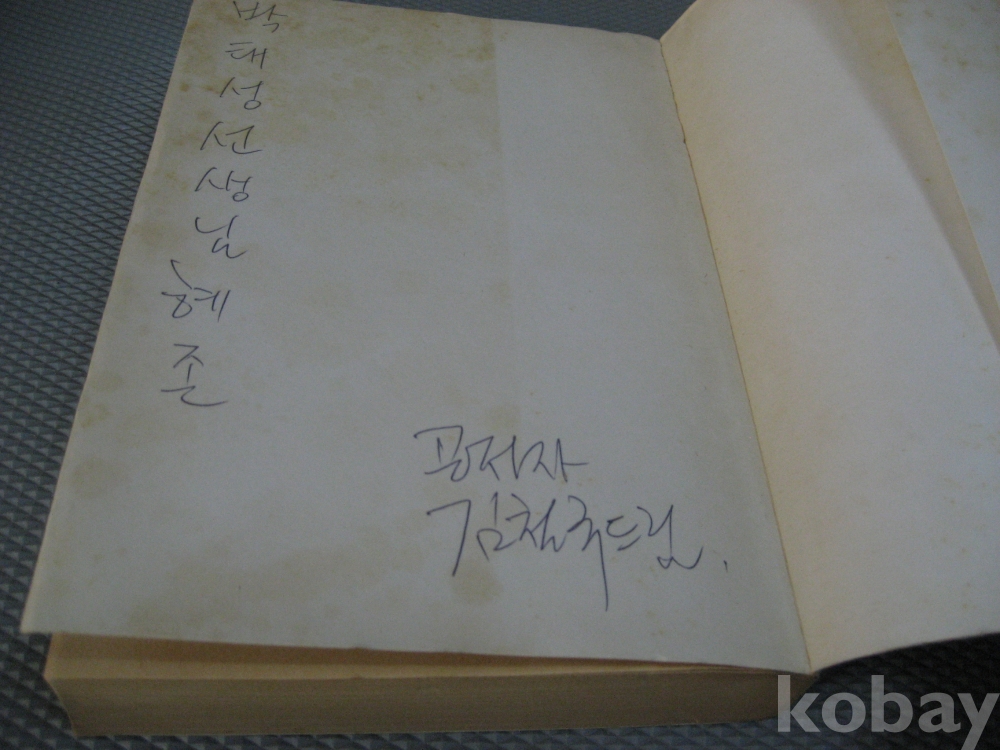 박태성선생님혜존
공저자
김천국드림.
kobay